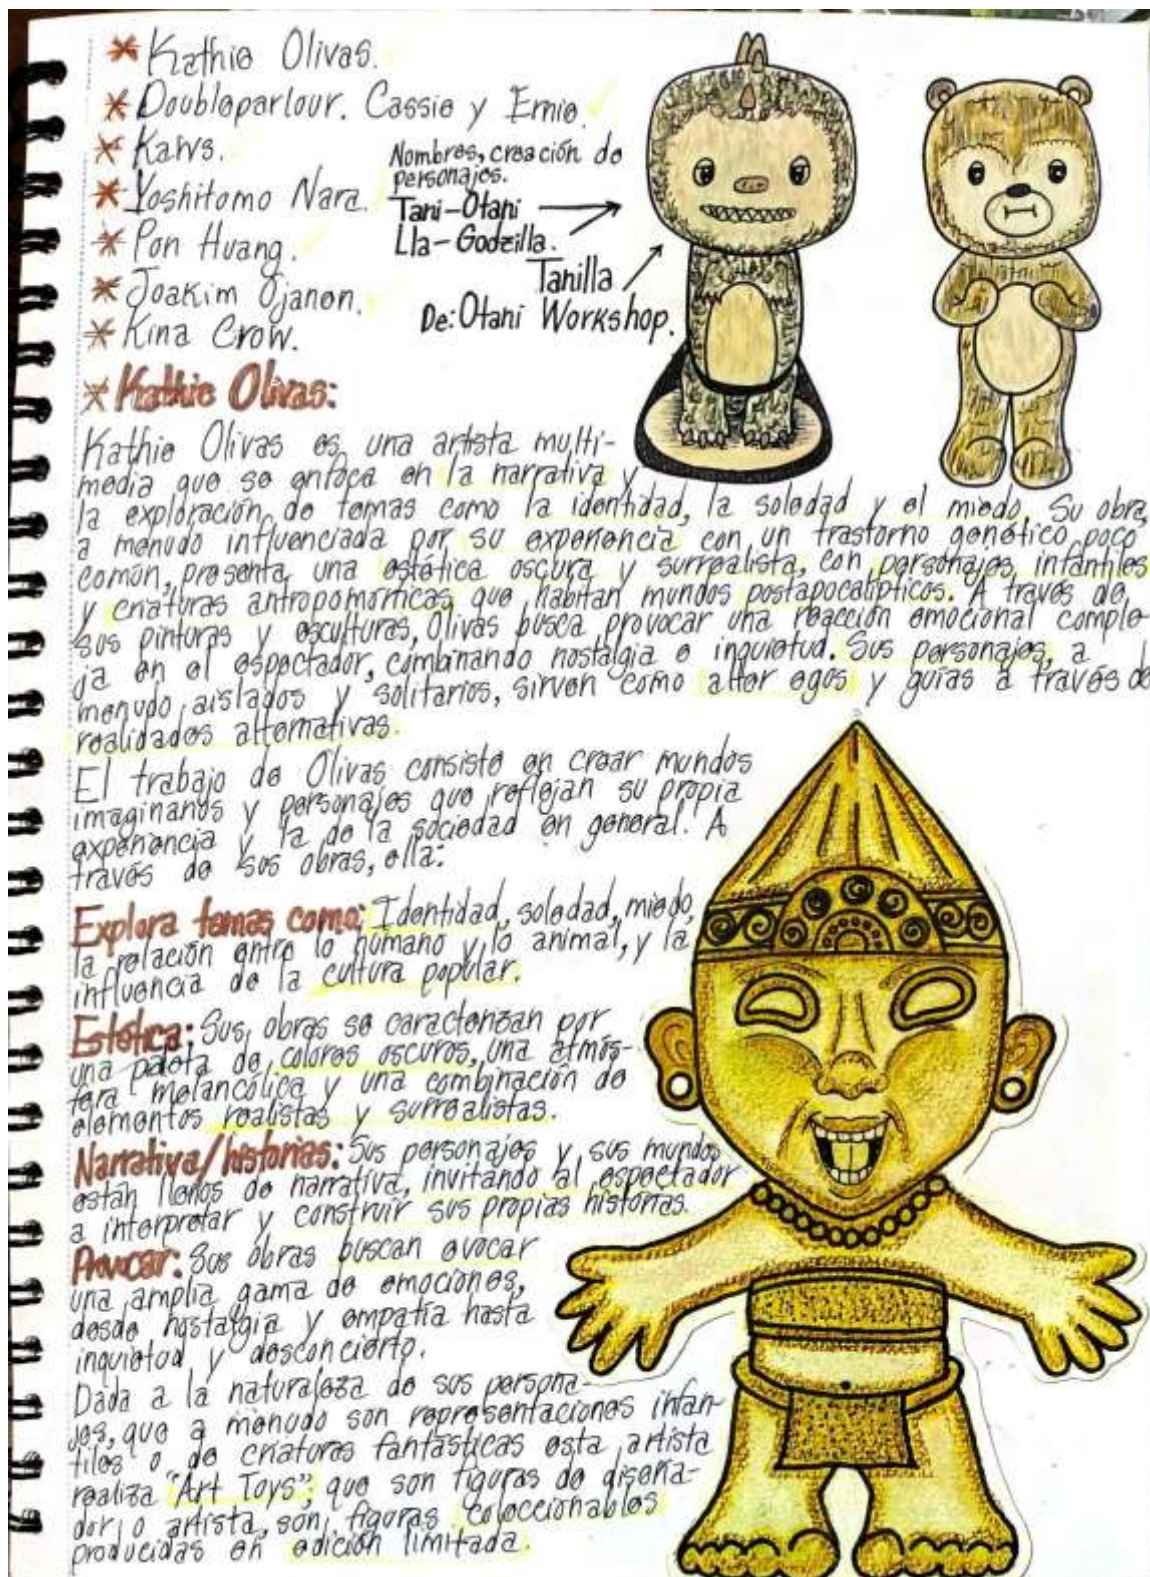 * Kathie Olivas.
* Doubleparlour. Cassie y Ernie.
* Kaws.
* Yoshitomo Nara.
* Pon Huang.
* Joakim Ojanen.
* Kina Crow.
Nombres, creación de
personajes.
Tani-Otani
Lla-Godzilla.
Tanilla
De: Otani Workshop.
* Kathie Olivas:
Kathie Olivas es una artista multi-
media que se enfoca en la narrativa y
la exploración de temas como la identidad, la soledad y el miedo. Su obra,
a menudo influenciada por su experiencia con un trastorno genético poco
común, presenta una estética oscura y surrealista, con personajes infantiles
y criaturas antropomórficas que habitan mundos postapocalípticos. A través de
sus pinturas y esculturas, Olivas busca provocar una reacción emocional comple-
ja en el espectador, combinando nostalgia e inquietud. Sus personajes, a
menudo aislados y solitarios, sirven como alter egos y guías a través de
realidades alternativas.
El trabajo de Olivas consiste en crear mundos
imaginarios y personajes que reflejan su propia
experiencia y la de la sociedad en general. A
través de sus obras, ella:
Explora temas como: Identidad, soledad, miedo,
la relación entre lo humano y lo animal, y la
influencia de la cultura popular.
Estética: Sus obras se caracterizan por
una paleta de colores oscuros, una atmós-
fera melancólica y una combinación de
elementos realistas y surrealistas.
Narrativa/historias: Sus personajes y sus mundos
están llenos de narrativa, invitando al espectador
a interpretar y construir sus propias historias.
Provocar: Sus obras buscan evocar
una amplia gama de emociones,
desde nostalgia y empatía hasta
inquietud y desconcierto.
Dada a la naturaleza de sus persona-
jes, que a menudo son representaciones infan-
tiles o de criaturas fantásticas esta artista
realiza "Art Toys", que son figuras de diseña-
dor o artista, son figuras coleccionables
producidas en edición limitada.